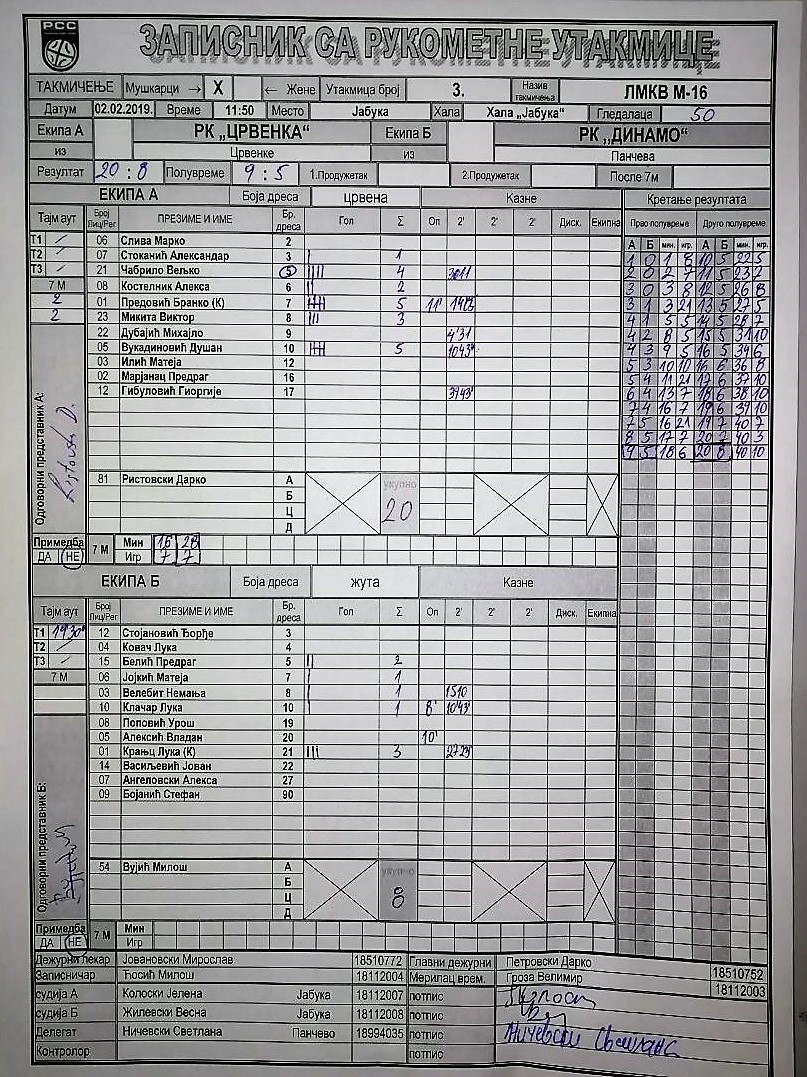 РСС
ЗАПИСНИК СА РУКОМЕТНЕ УТАКМИЦЕ
ТАКМИЧЕЊЕ Мушкарци → X ← Жене Утакмица број 3. Назив такмичења ЛМКВ М-16
Датум 02.02.2019. Време 11:50 Место Јабука Хала Хала „Јабука“ Гледалаца 50
Екипа А РК „ЦРВЕНКА“ Екипа Б РК „ДИНАМО“
из Црвенке из Панчева
Резултат 20 : 8 Полувреме 9 : 5 1.Продужетак 2.Продужетак После 7м
ЕКИПА А Боја дреса црвена Казне Кретање резултата
Тајм аут Број Лиц/Рег ПРЕЗИМЕ И ИМЕ Бр. дреса Гол Σ Оп 2' 2' 2' Диск. Екипна Прво полувреме Друго полувреме
А Б мин. игр. А Б мин игр.
Т1 / 06 Слива Марко 2
Т2 / 07 Стоканић Александар 3 | 1
Т3 / 21 Чабрило Вељко 5 |||| 4
7 М 08 Костелник Алекса 6 || 2
2 01 Предовић Бранко (К) 7 5 11'
2 23 Микита Виктор 8 ||| 3
22 Дубајић Михајло 9 4'31
05 Вукадиновић Душан 10 5 1043"
03 Илић Матеја 12
02 Марјанац Предраг 16
12 Гибуловић Гиоргије 17
1 0 1 8 10 5 22 5
2 0 2 7 11 5 23 7
3 0 3 8 12 5 26 8
3 1 3 21 13 5 27 5
4 1 5 5 14 5 28 7
4 2 8 5 15 5 31 10
4 3 9 5 16 5 34 6
5 3 10 10 16 6 36 8
5 4 11 21 17 6 37 10
6 4 13 7 18 6 38 10
7 4 16 7 19 6 39 10
7 5 16 21 19 7 40 7
8 5 17 7 20 7 40 3
9 5 18 6 20 8 40 10
Одговорни представник А:
81 Ристовски Дарко А укупно 20
Б
Ц
Д
Примедба 7 М Мин 16 28
ДА НЕ Игр 7 7
ЕКИПА Б Боја дреса жута Казне
Тајм аут Број Лиц/Рег ПРЕЗИМЕ И ИМЕ Бр. дреса Гол Σ Оп 2' 2' 2' Диск. Екипна
Т1 19'30" 12 Стојановић Ђорђе 3
Т2 / 04 Ковач Лука 4
Т3 / 15 Белић Предраг 5 || 2
7 М 06 Јојкић Матеја 7 | 1
03 Велебит Немања 8 | 1 1510
10 Клачар Лука 10 | 1 8' 10'43"
08 Поповић Урош 19
05 Алексић Владан 20 10'
01 Крањц Лука (К) 21 ||| 3
14 Васиљевић Јован 22
07 Ангеловски Алекса 27
09 Бојанић Стефан 90
Одговорни представник Б:
54 Вујић Милош А укупно 8
Б
Ц
Д
Примедба 7 М Мин
ДА НЕ Игр
Дежурни лекар Јовановски Мирослав 18510772 Главни дежурни Петровски Дарко 18510752
Записничар Ћосић Милош 18112004 Мерилац врем. Гроза Велимир 18112003
судија А Колоски Јелена Јабука 18112007 потпис
судија Б Жилевски Весна Јабука 18112008 потпис
Делегат Ничевски Светлана Панчево 18994035 потпис Ничевски Светлана
Контролор потпис